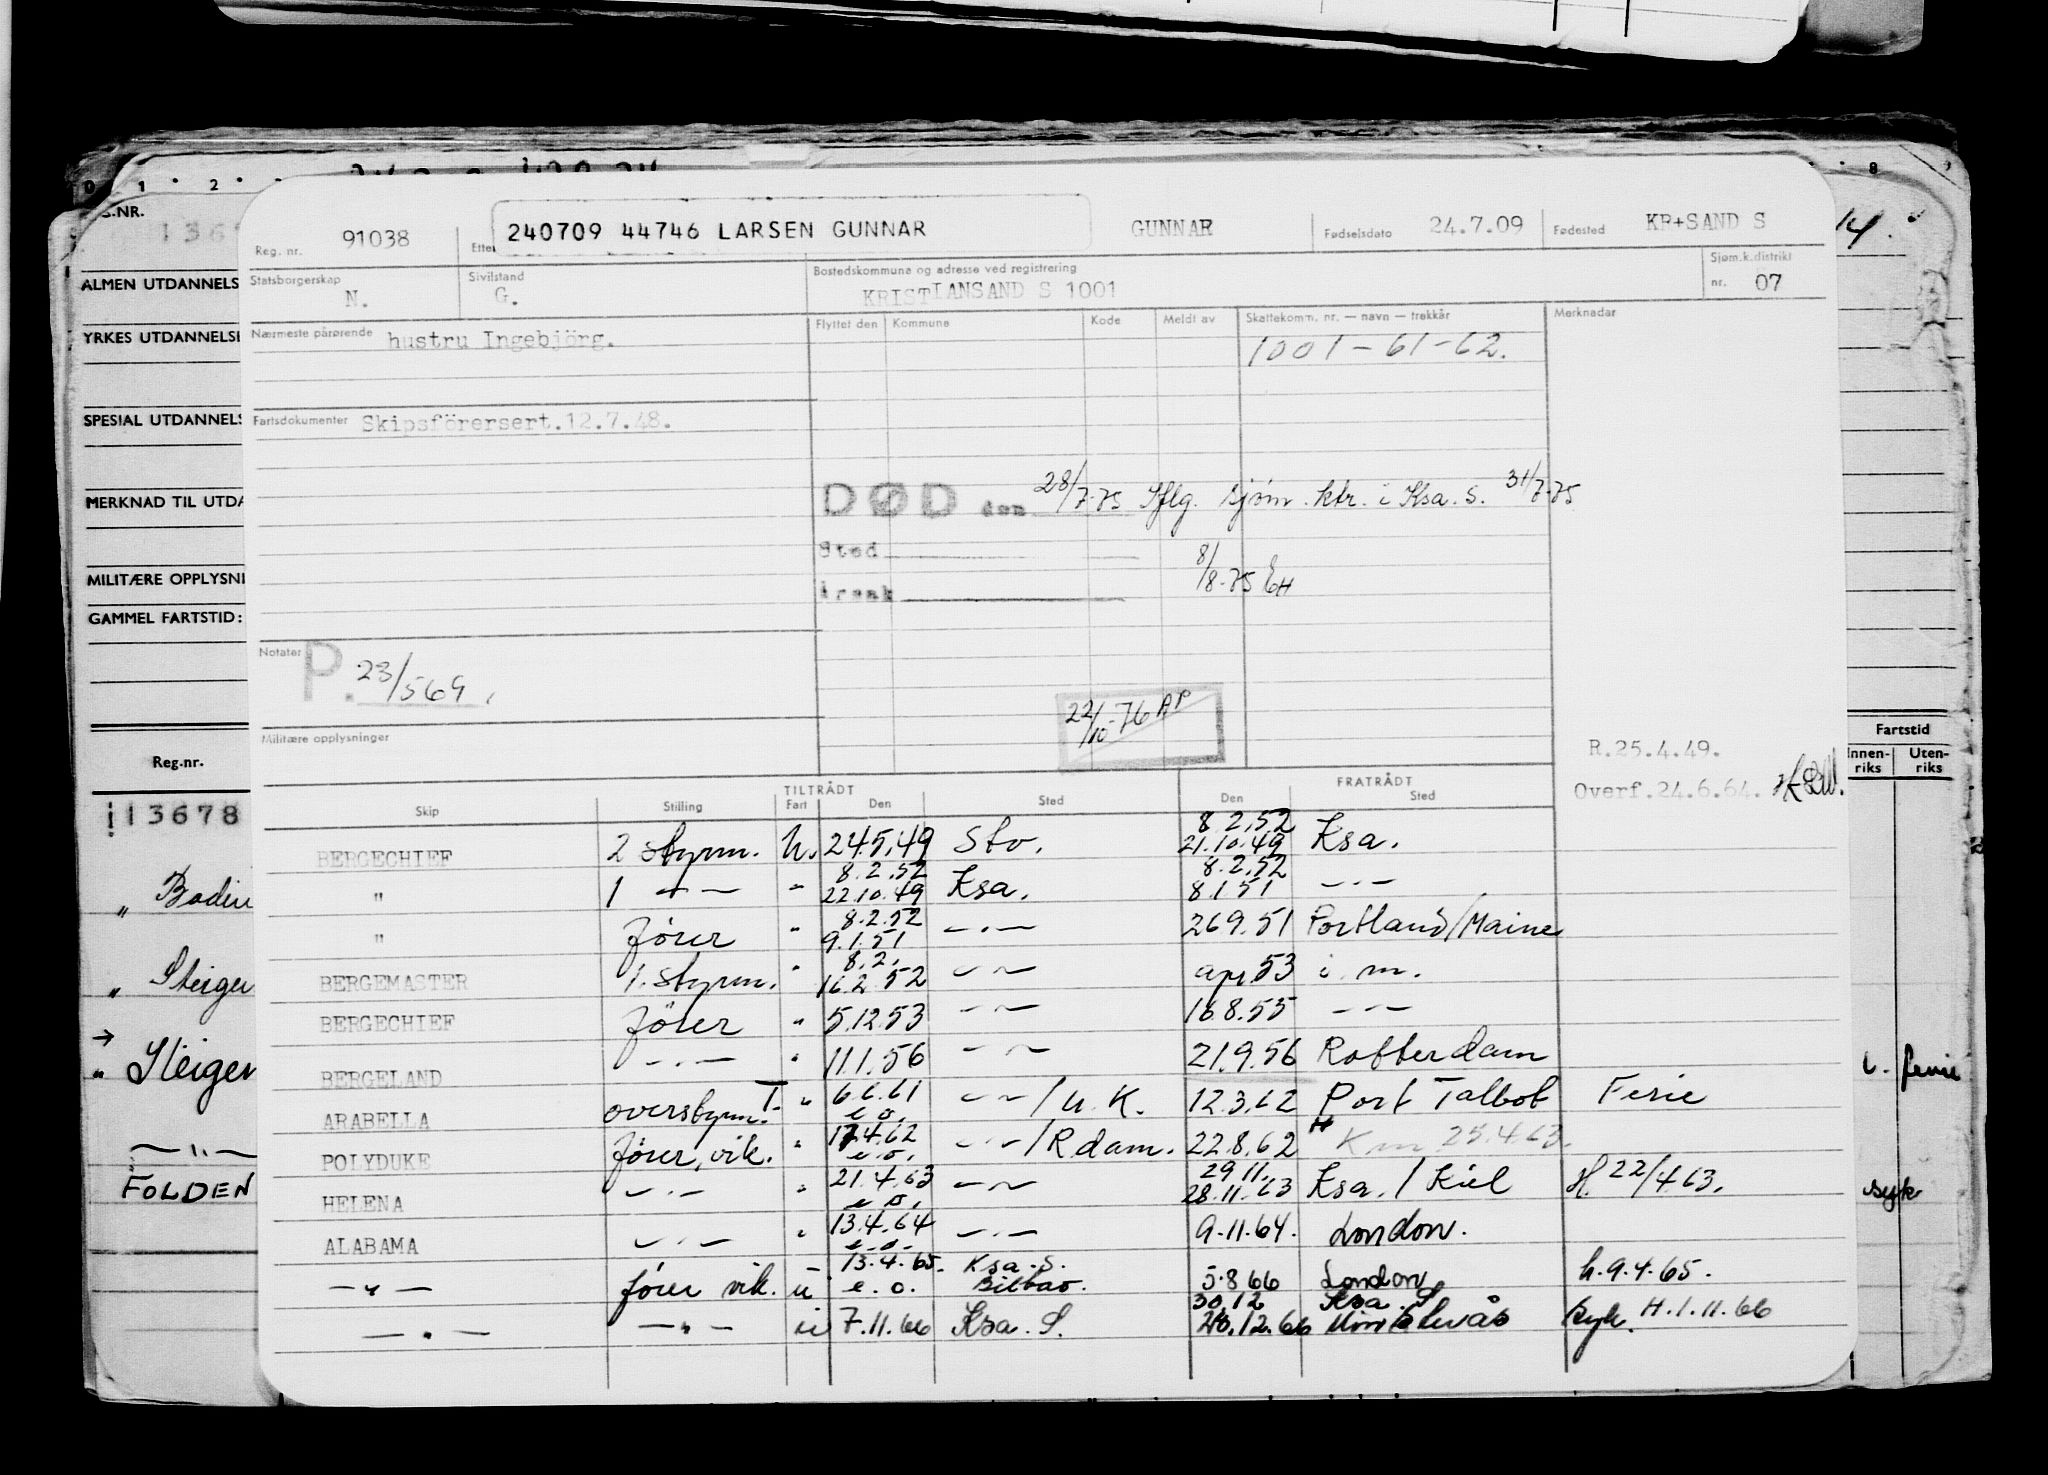 0 1 2 8
S.NR. 1 3 6 14.
Reg. nr. 91038 Etter 240709 44746 LARSEN GUNNAR GUNNAR Fødselsdato 24.7.09 Fødested KR+SAND S
ALMEN UTDANNELS
Statsborgerskap N. Sivilstand G. Bostedskommune og adresse ved registrering KRISTIANSAND S 1001 Sjøm.k.distrikt nr. 07
YRKES UTDANNELSE
Nærmeste pårørende hustru Ingebjörg. Flyttet den Kommune Kode Meldt av Skattekomm. nr. — navn — trekkår Merknader
1001-61-62.
SPESIAL UTDANNELS
Fartsdokumenter Skipsförersert.12.7.48.
MERKNAD TIL UTDA
DØD den 28/7-75 Iflg. sjøm. ktr. i Ksa. S. 31/7-75
Sted
Årsak 8/8-75 EH
MILITÆRE OPPLYSNI
GAMMEL FARTSTID:
Notater P. 23/569.
22/10-76 AP
Militære opplysninger
R.25.4.49.
Overf.24.6.64.
Fartstid
Reg.nr. Innen-riks Uten-riks
TILTRÅDT FRATRÅDT
Skip Stilling Fart Den Sted Den Sted
113678
BERGECHIEF 2 styrm. U. 24.5.49 Sto. 8.2.52 21.10.49 Ksa.
" 1 -"- " 8.2.52 22.10.49 Ksa. 8.2.52 8.1.51 -"-
" Bodin
" fører " 8.2.52 9.1.51 -"- 26.9.51 Portland/Maine
" Steiger
BERGEMASTER 1. styrm. " 8.2. 16.2.52 -"- apr.53 i. m.
BERGECHIEF fører " 5.12.53 -"- 16.8.55 -"-
" Steigen
BERGELAND -"- " 11.1.56 -"- 21.9.56 Rotterdam
u. ferie
ARABELLA overstyrm. T. " 6.6.61 e.o. -"-/U.K. 12.3.62 Port Talbot Ferie
POLYDUKE fører, vik. " 17.4.62 e.o. -"-/R.dam. 22.8.62 Km 25.4.63.
FOLDEN
HELENA -"- " 21.4.63 e.o. -"- 29.11. 28.11.63 Ksa./Kiel H. 22/4.63.
syk
ALABAMA -"- " 13.4.64 e.o. -"- 9.11.64. London.
-"- fører vik. u 13.4.65. e.o. Ksa. S. Bilbao. 5.8.66 London h.9.4.65.
-"- -"- u 7.11.66 Ksa. S. 30.12 20.12.66 Ksa. S syk. H.1.11.66